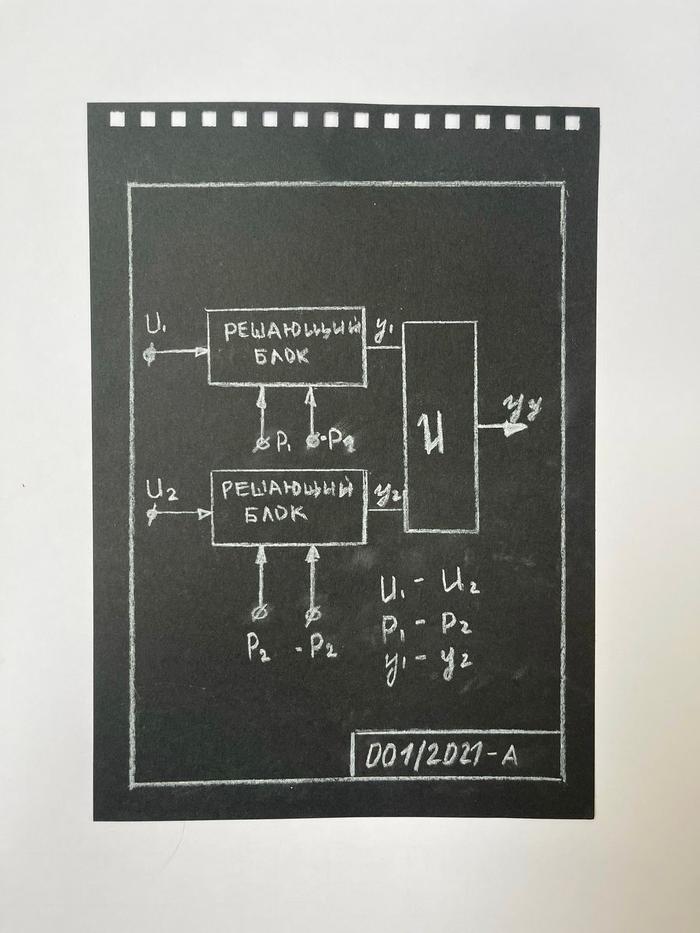 U₁
РЕШАЮЩИЙ
БЛОК
y₁
P₁
-P₂
И
yy
U₂
РЕШАЮЩИЙ
БЛОК
y₂
P₂
-P₂
U₁ - U₂
P₁ - P₂
y₁ - y₂
001/2021-A